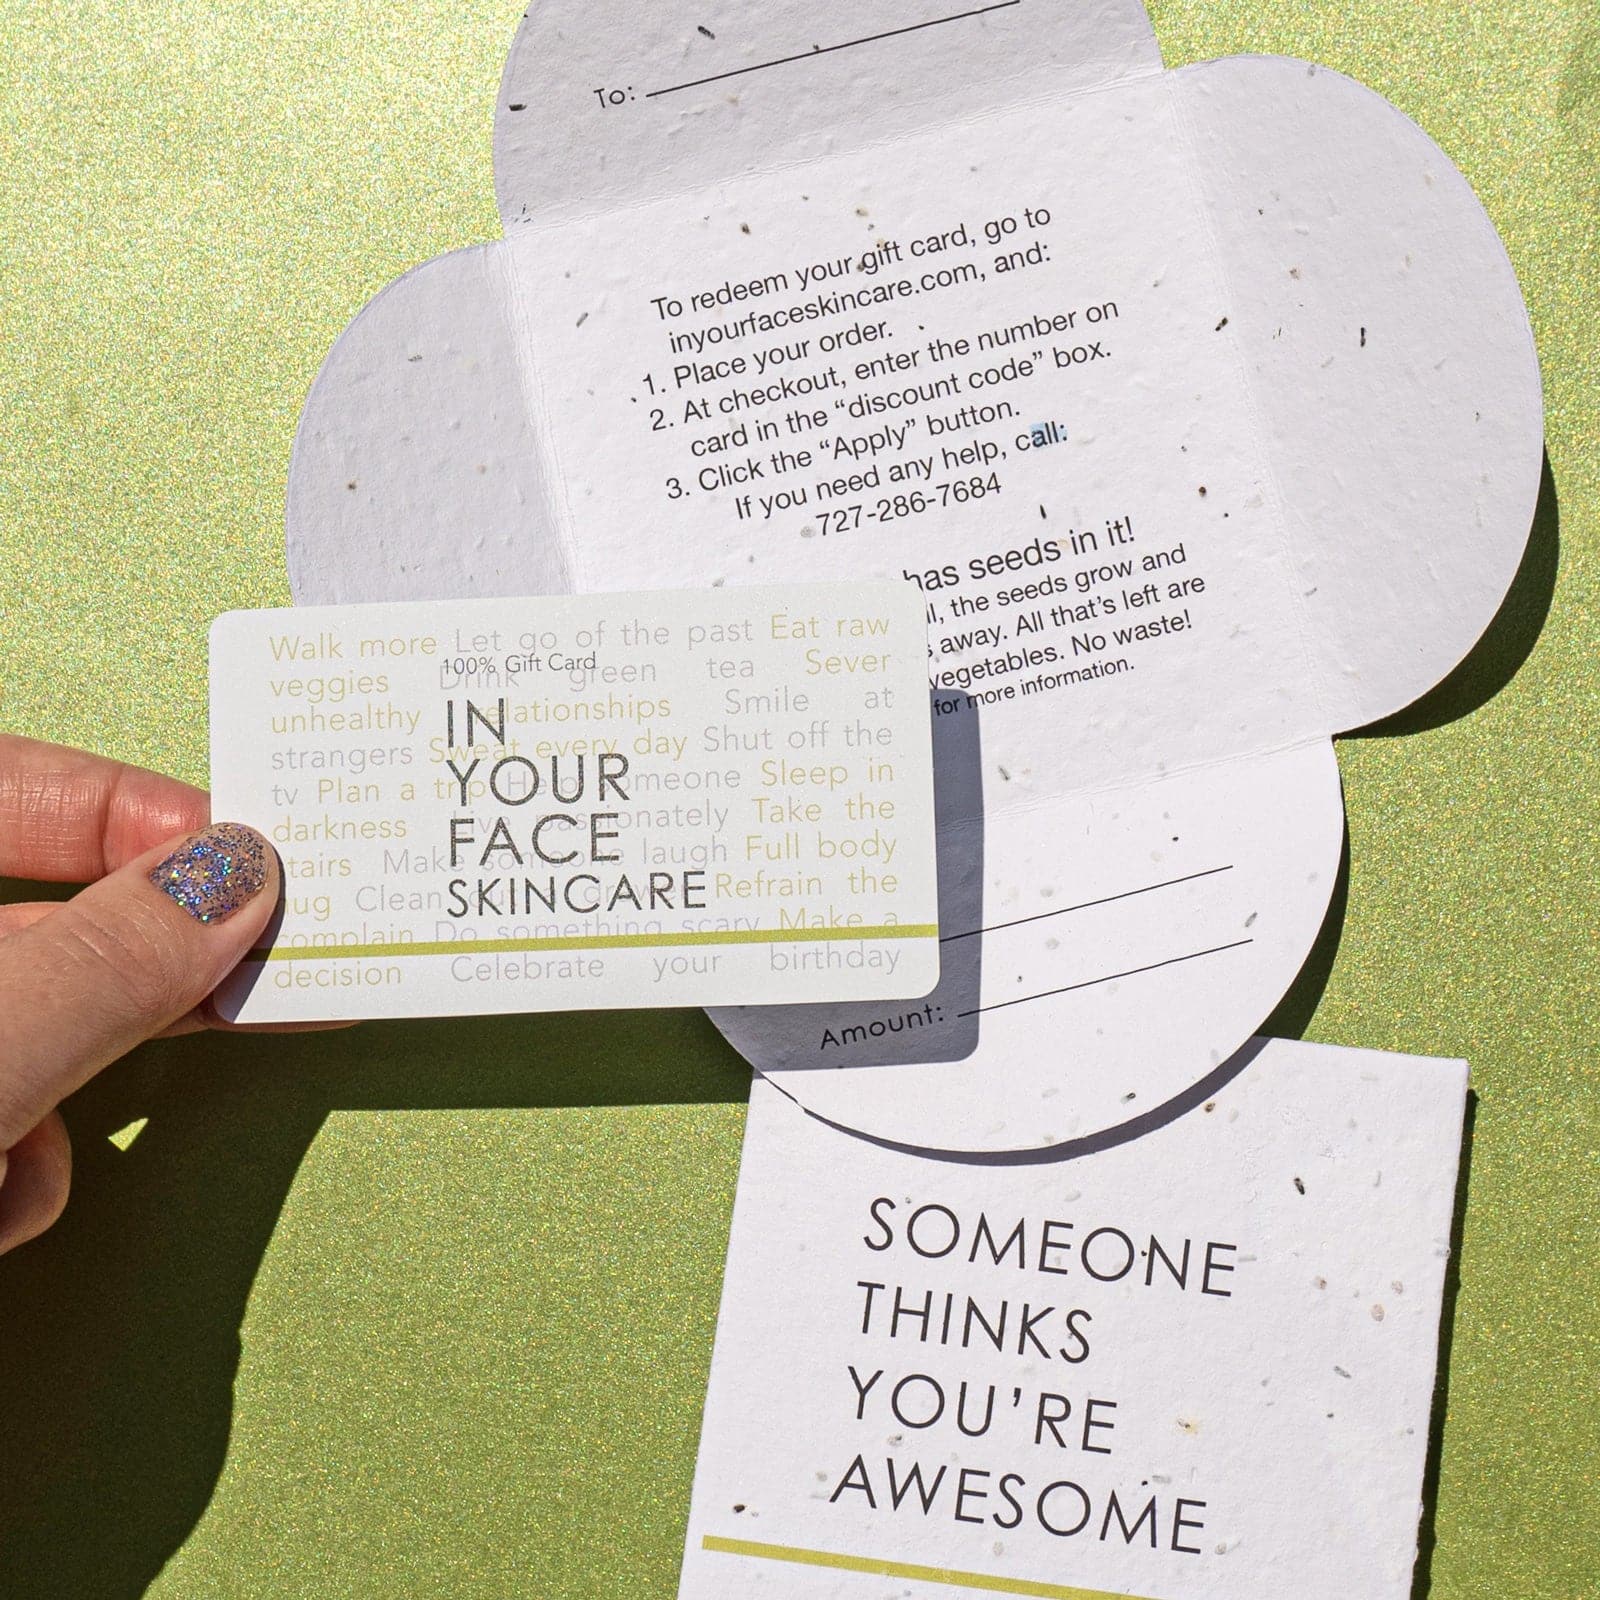 To:
To redeem your gift card, go to
inyourfaceskincare.com, and:
1. Place your order.
2. At checkout, enter the number on
card in the “discount code” box.
3. Click the “Apply” button.
If you need any help, call:
727-286-7684
has seeds in it!
, the seeds grow and
away. All that’s left are
vegetables. No waste!
for more information.
Walk more Let go of the past Eat raw
100% Gift Card
veggies Drink green tea Sever
unhealthy relationships Smile at
strangers Sweat every day Shut off the
tv Plan a trip Help someone Sleep in
darkness Live passionately Take the
stairs Make someone laugh Full body
hug Clean out a drawer Refrain the
complain Do something scary Make a
decision Celebrate your birthday
IN
YOUR
FACE
SKINCARE
Amount:
SOMEONE
THINKS
YOU’RE
AWESOME